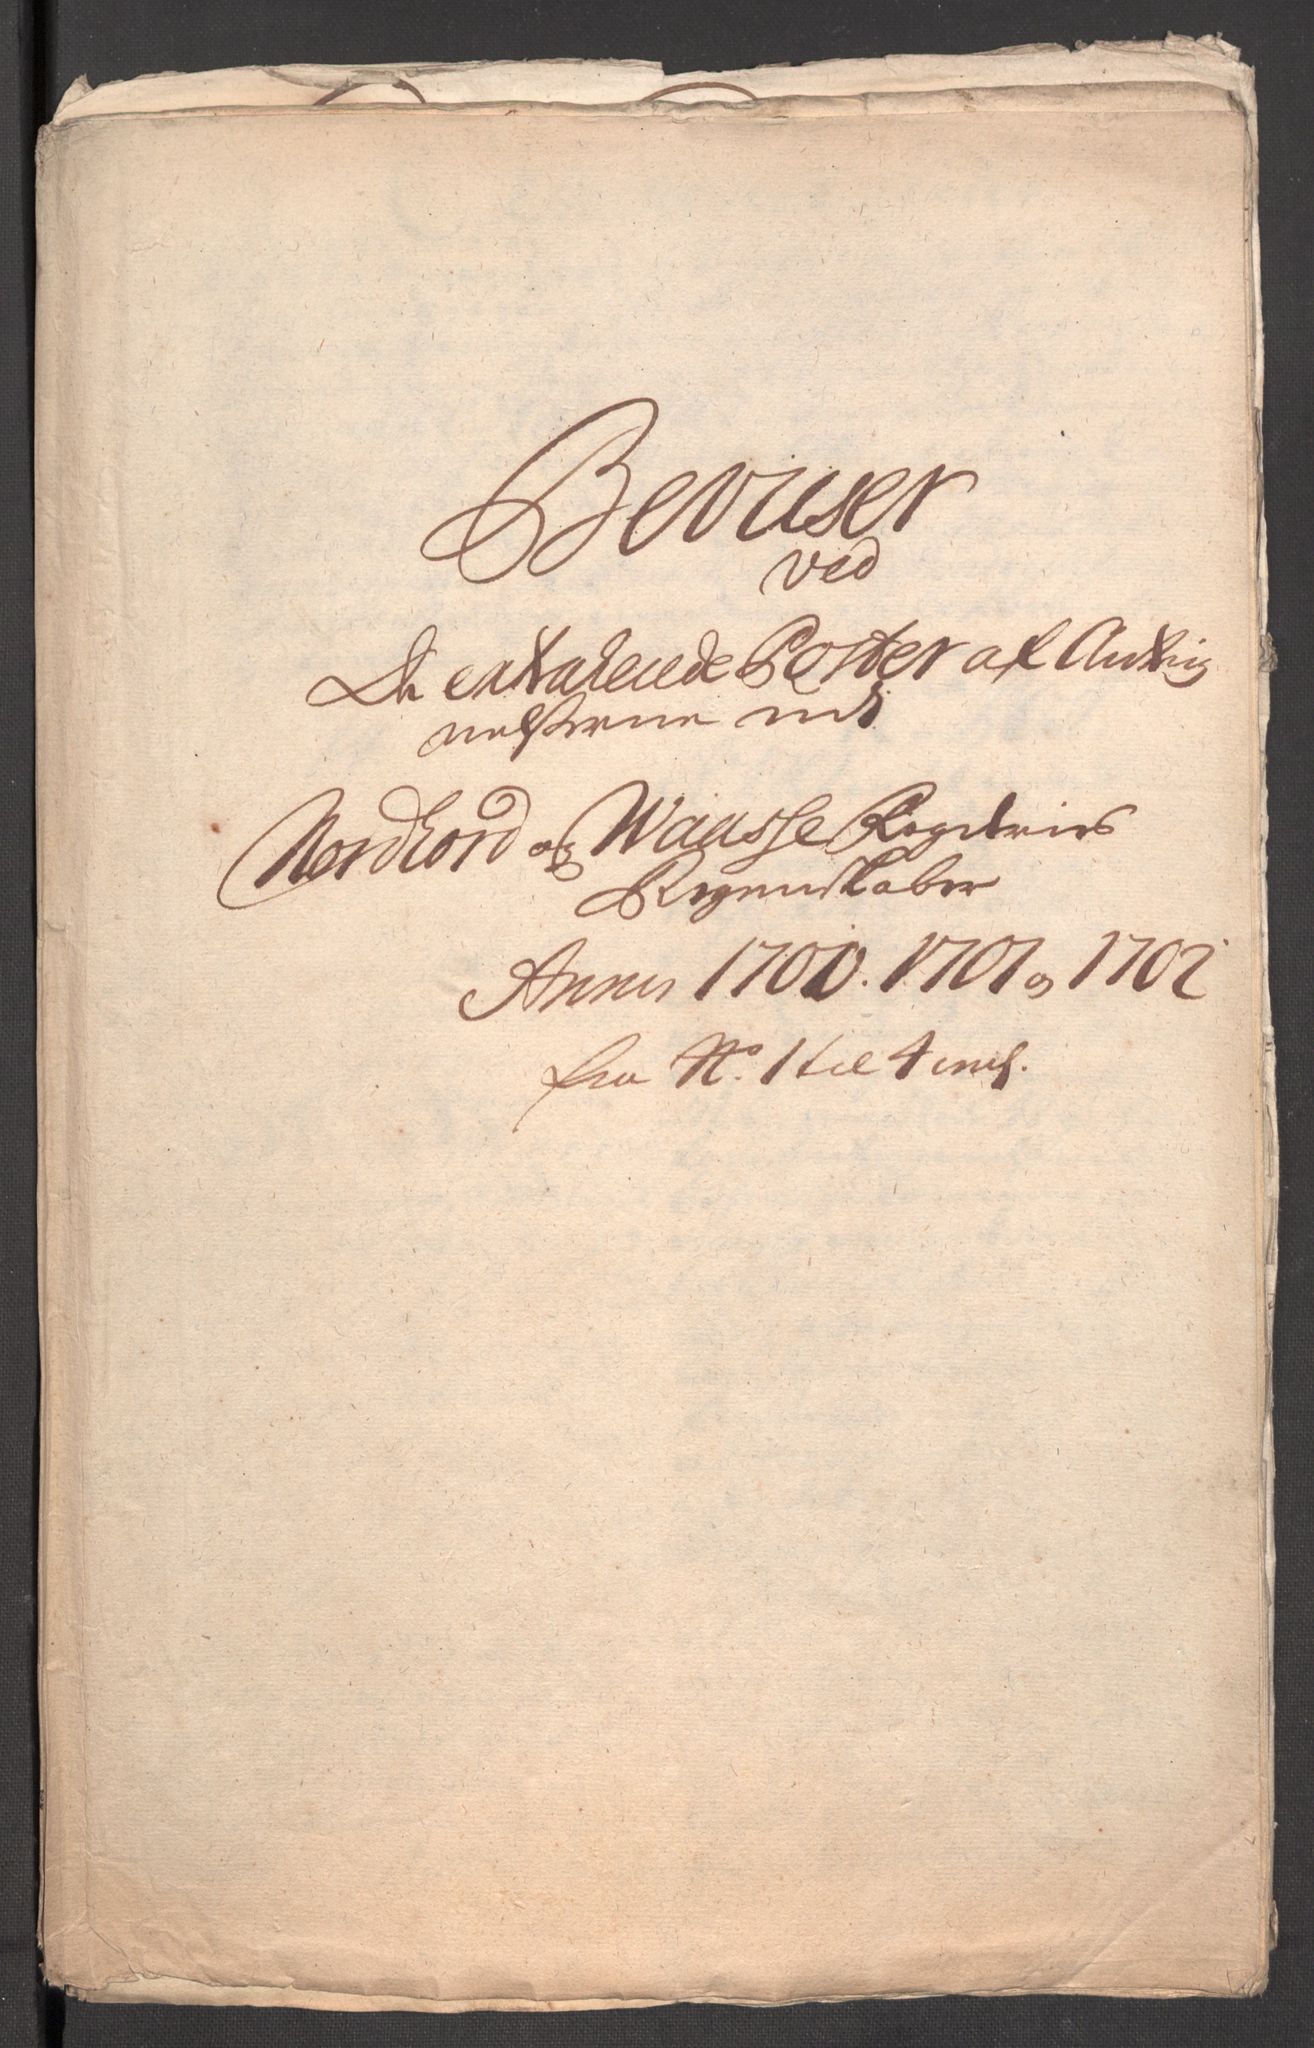 Beviser
ved
De extraherede Poster af Anteig
nelserne ved
Nordhord og Waasse Fogderies
Regenskaber
Annis 1700. 1701 og 1702
fra No. 1 til 4 incl.